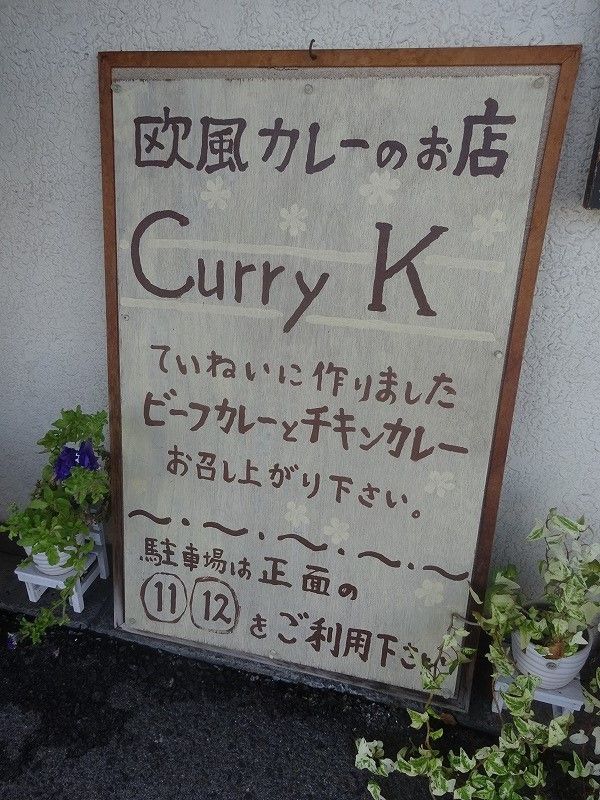 欧風カレーのお店
Curry K
ていねいに作りました
ビーフカレーとチキンカレー
お召し上がり下さい。
〜・〜・〜・〜・〜
駐車場は正面の
⑪⑫をご利用下さい